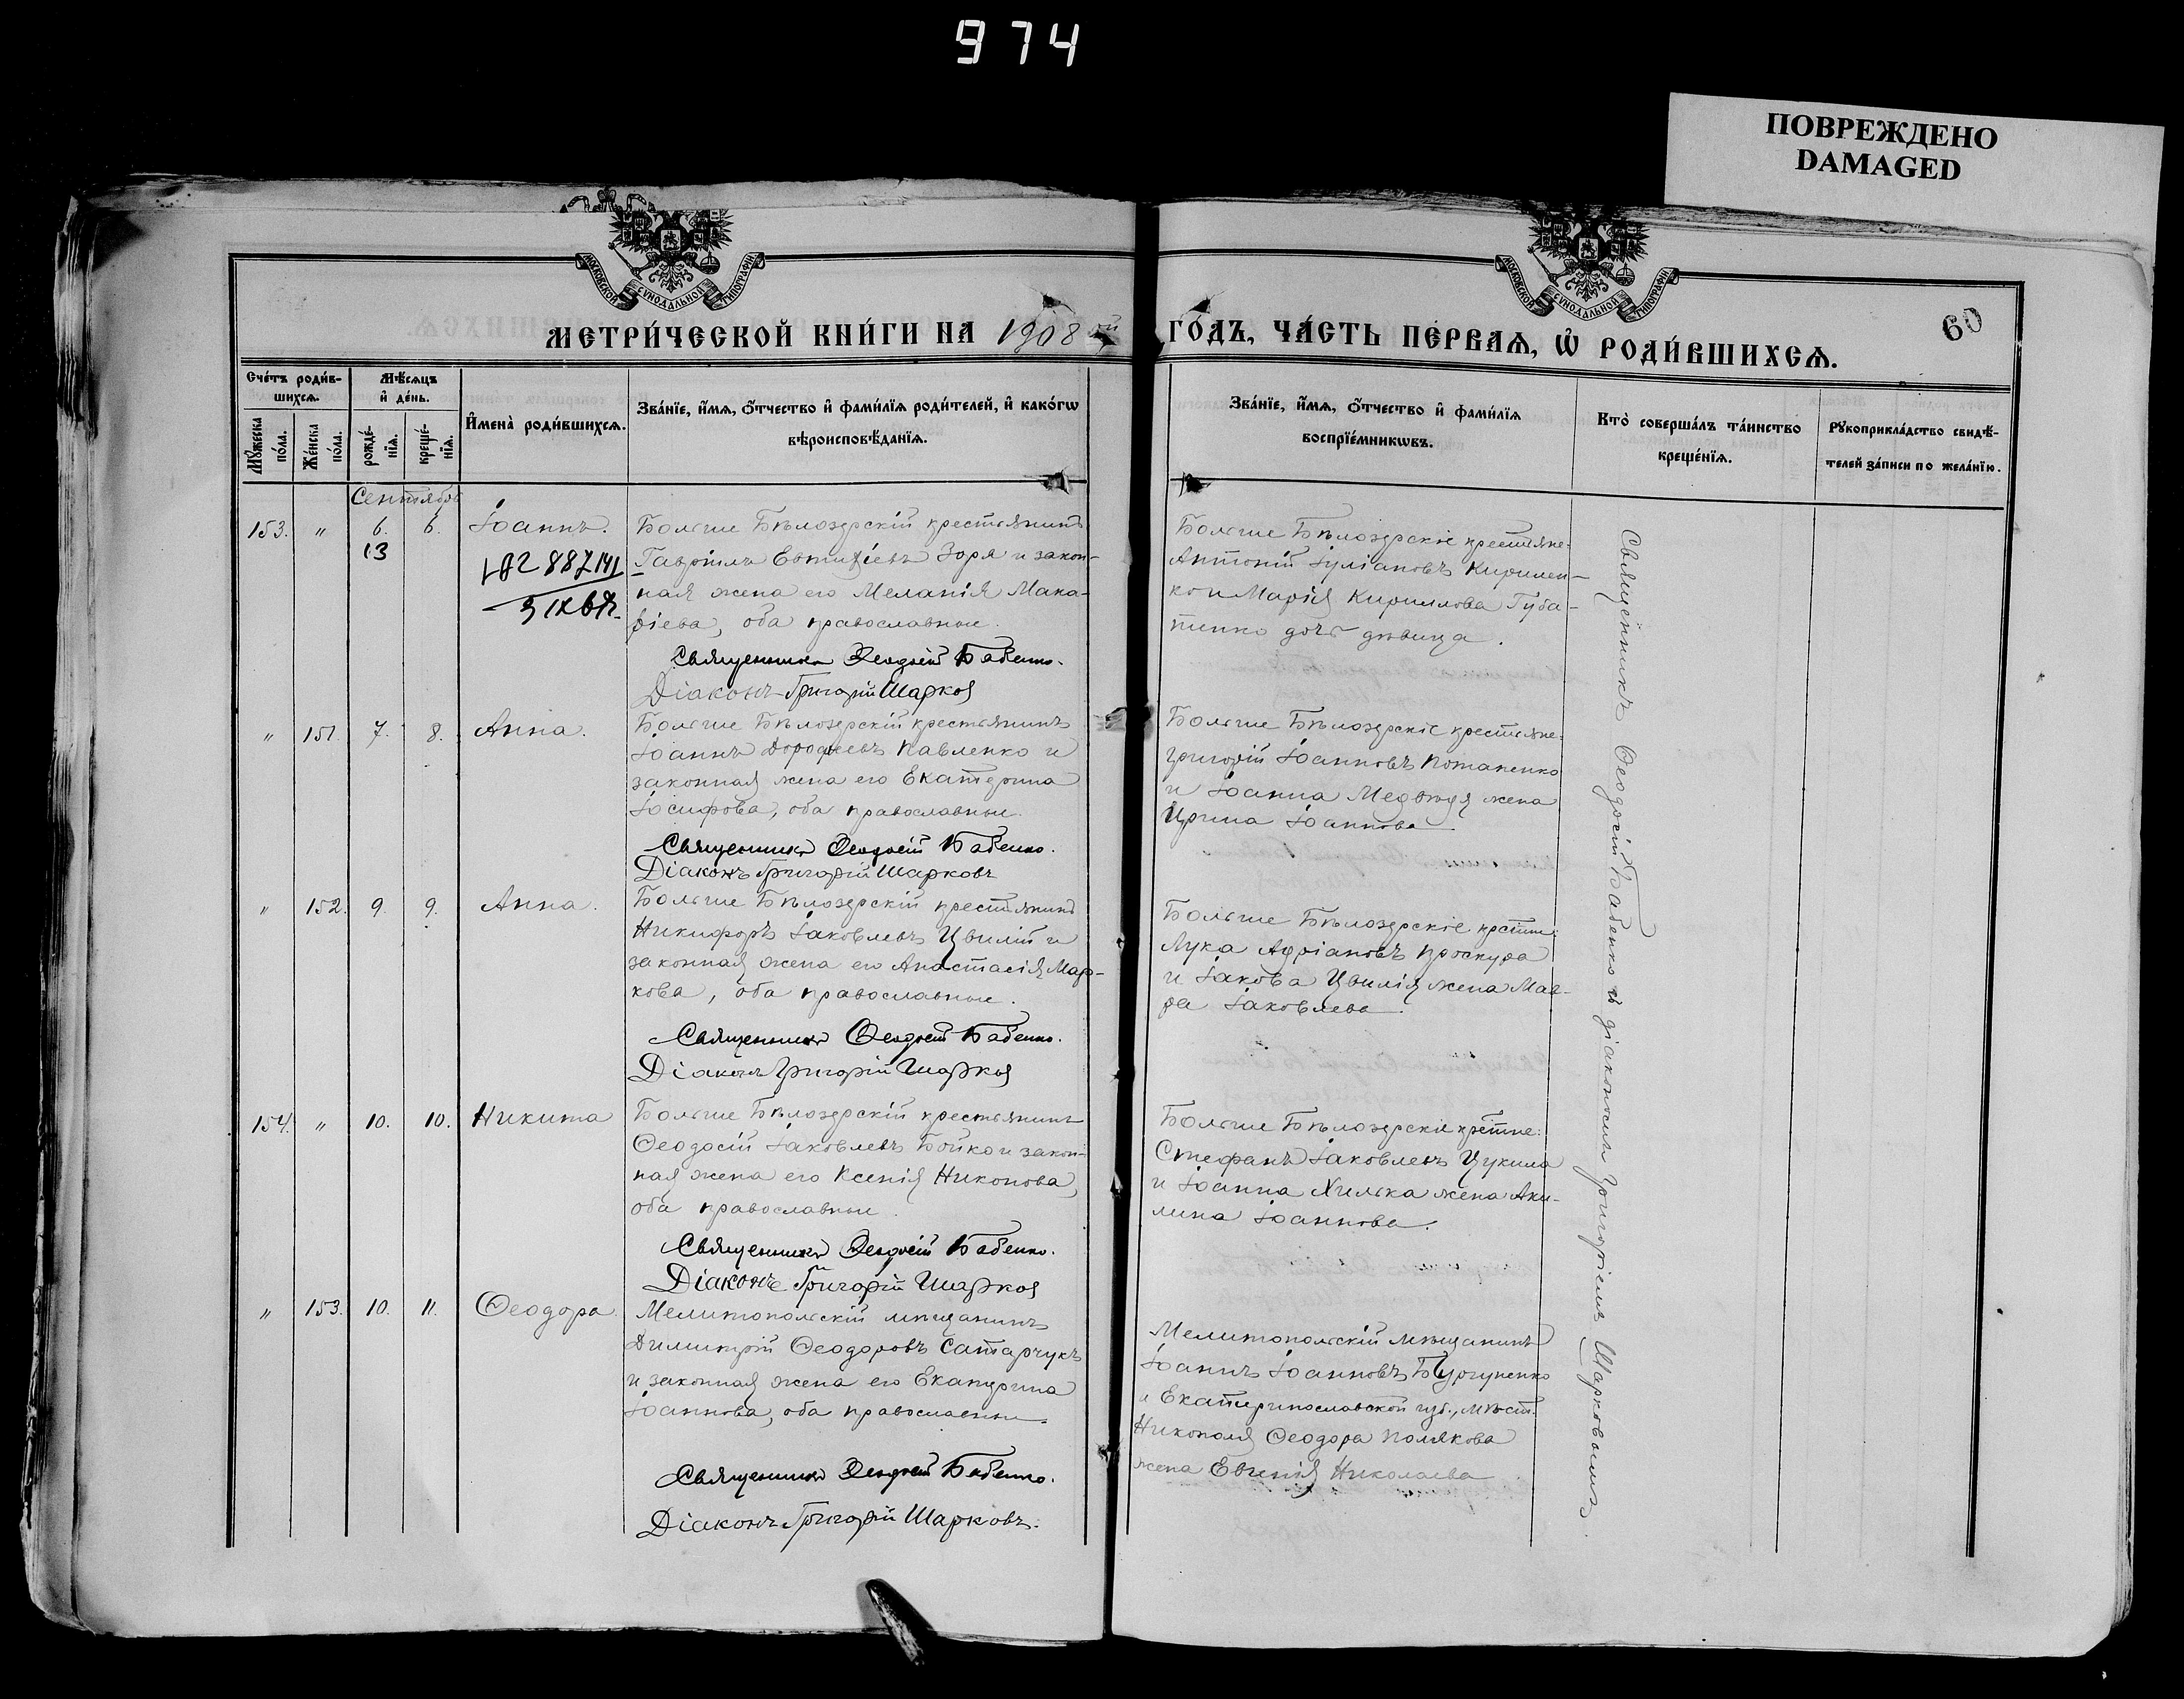 974
ПОВРЕЖДЕНО
DAMAGED
МОСКОВСКОЙ СУНОДАЛЬНОЙ ТИПОГРАФІИ
МОСКОВСКОЙ СУНОДАЛЬНОЙ ТИПОГРАФІИ
60
МЕТРИ́ЧЕСКОЙ КНИ́ГИ НА 1908 ой ГО́ДЪ, ЧА́СТЬ ПЕ́РВАѦ, Ѡ҆ РОДИ́ВШИХСѦ.
Сче́тъ роди́в-
шихсѧ.
Мѣ́сѧцъ
и҆ де́нь.
И҆мена̀ роди́вшихсѧ.
Зва́нїе, и҆́мѧ, ѻ҆́тчество и҆ фами́лїѧ роди́телей, и҆ како́гѡ
вѣроисповѣ́данїѧ.
Зва́нїе, и҆́мѧ, ѻ҆́тчество и҆ фами́лїѧ
воспрїе́мникѡвъ.
Кто̀ соверша́лъ та́инство
креще́нїѧ.
Рꙋкоприкла́дство свидѣ́-
телей за́писи по жела́нїю.
Мꙋ́жеска
по́ла.
Же́нска
по́ла.
рожде́-
нїѧ.
креще́-
нїѧ.
Сентябрь
153. " 6. 6. Іоаннъ.
13
Больше Бѣлозерскій крестьянинъ
Гавріилъ Евтихіевъ Зоря и закон-
ная жена его Меланія Мака-
ріева, оба православные.
Священникъ Ѳеодосій Бабенко.
Діаконъ Григорій Шарков
Больше Бѣлозерскіе крестьяне:
Антоній Іуліановъ Кирилен-
ко и Марія Кириллова Губа-
тенко дочь дѣвица.
" 151. 7. 8. Анна.
Больше Бѣлозерскій крестьянинъ
Іоаннъ Дороѳеевъ Павленко и
законная жена его Екатерина
Іосифова, оба православные.
Священникъ Ѳеодосій Бабенко.
Діаконъ Григорій Шарковъ
Больше Бѣлозерскіе крестьяне:
Григорій Іоанновъ Потапенко
и Іоанна Медведя жена
Ирина Іоаннова
" 152. 9. 9. Анна.
Больше Бѣлозерскій крестьянинъ
Никифоръ Іаковлевъ Цвилій и
законная жена его Анастасія Мар-
кова, оба православные.
Священникъ Ѳеодосій Бабенко.
Діаконъ Григорій Шарков
Больше Бѣлозерскіе крестьяне:
Лука Адріановъ Проскура
и Іакова Цвилія жена Мав-
ра Іаковлева.
154. " 10. 10. Никита
Больше Бѣлозерскій крестьянинъ
Ѳеодосій Іаковлевъ Бойко и закон-
ная жена его Ксенія Никонова,
оба православные.
Священникъ Ѳеодосій Бабенко.
Діаконъ Григорій Шарков
Больше Бѣлозерскіе крестьяне:
Стефанъ Іаковлевъ Цукила
и Іоанна Хилька жена Аки-
лина Іоаннова.
" 153. 10. 11. Ѳеодора.
Мелитопольскій мѣщанинъ
Димитрій Ѳеодоровъ Сатарчукъ
и законная жена его Екатерина
Іоаннова, оба православные.
Священникъ Ѳеодосій Бабенко.
Діаконъ Григорій Шарковъ.
Мелитопольскій мѣщанинъ
Іоаннъ Іоанновъ
и Екатеринославской губ., мѣст.
Никополя Ѳеодора Полякова
жена Евгенія Николаева
Священникъ Ѳеодосій Бабенко съ діакономъ Григоріемъ Шарковымъ.